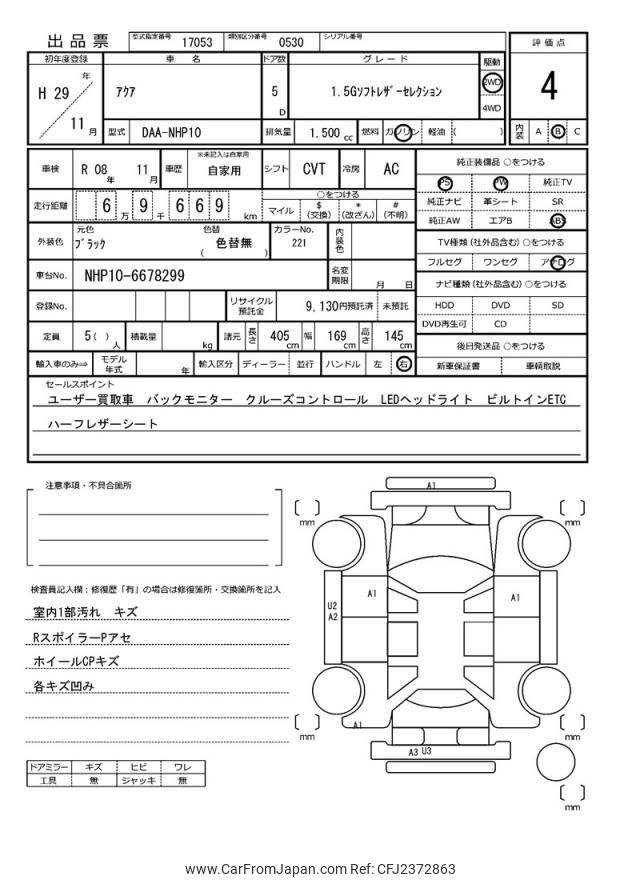 出品票
型式指定番号 17053 類別区分番号 0530 シリアル番号
評価点
4
内装 A B C
初年度登録 車名 ドア数 グレード 駆動
H 29 年 11 月
アクア
5 D
1.5Gソフトレザーセレクション
2WD
4WD
型式 DAA-NHP10 排気量 1.500 cc 燃料 ガソリン 軽油 ( )
車検 R 08 年 11 月 車歴 ※未記入は自家用 自家用 シフト CVT 冷房 AC
走行距離 6 万 9 千 6 6 9 km
○をつける
マイル $ (交換) * (改ざん) # (不明)
外装色 元色 ブラック 色替 ( 色替無 ) カラーNo. 221 内装色
車台No. NHP10-6678299 名変期限 月 日
登録No. リサイクル預託金 9,130円預託済 未預託
定員 5( ) 人 積載量 kg 諸元 長さ 405 cm 幅 169 cm 高さ 145 cm
輸入車のみ⇒ モデル年式 年 輸入区分 ディーラー 並行 ハンドル 左 右
純正装備品 ○をつける
PS PW 純正TV
純正ナビ 革シート SR
純正AW エアB ABS
TV種類 (社外品含む) ○をつける
フルセグ ワンセグ アナログ
ナビ種類 (社外品含む) ○をつける
HDD DVD SD
DVD再生可 CD
後日発送品 ○をつける
新車保証書 車輌取説
セールスポイント
ユーザー買取車 バックモニター クルーズコントロール LEDヘッドライト ビルトインETC
ハーフレザーシート
注意事項・不具合箇所
検査員記入欄：修復歴「有」の場合は修復箇所・交換箇所を記入
室内1部汚れ キズ
RスポイラーPアセ
ホイールCPキズ
各キズ凹み
ドアミラー キズ ヒビ ワレ
工具 無 ジャッキ 無
A1
[ ] mm
[ ] mm
A1
A1
U2
A2
A1
[ ] mm
[ ] mm
A3 U3
[ ] mm
www.CarFromJapan.com Ref: CFJ2372863